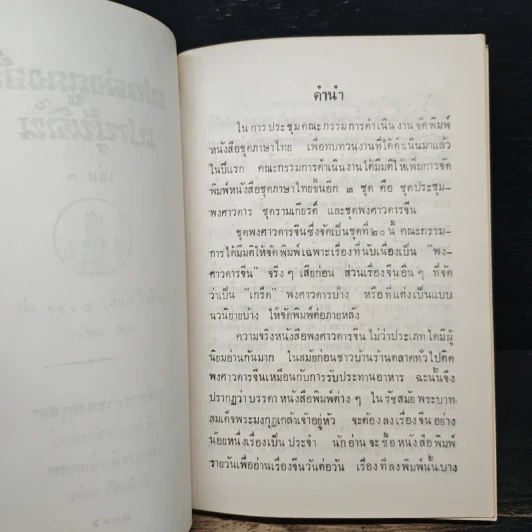 คำนำ
ในการประชุมคณะกรรมการดำเนินงานจัดพิมพ์
หนังสือชุดภาษาไทย เพื่อทบทวนงานที่ได้ดำเนินมาแล้ว
ในปีแรก คณะกรรมการดำเนินงานได้มีมติให้เพิ่มการจัด
พิมพ์หนังสือชุดภาษาไทยขึ้นอีก ๓ ชุด คือ ชุดประชุม-
พงศาวดาร ชุดรามเกียรติ์ และชุดพงศาวดารจีน
ชุดพงศาวดารจีนซึ่งจัดเป็นชุดที่ ๒๐ นี้ คณะกรรม-
การได้มีมติให้จัดพิมพ์เฉพาะเรื่องที่นับเนื่องเป็น "พง-
ศาวดารจีน" จริง ๆ เสียก่อน ส่วนเรื่องจีนอื่น ๆ ที่จัด
ว่าเป็น "เกร็ด" พงศาวดารบ้าง หรือที่แต่งเป็นแบบ
นวนิยายบ้าง ให้จัดพิมพ์ต่อภายหลัง
ความจริงหนังสือพงศาวดารจีน ไม่ว่าประเภทใดมีผู้
นิยมอ่านกันมาก ในสมัยก่อนชาวบ้านร้านตลาดทั่วไปติด
พงศาวดารจีนเหมือนกับการรับประทานอาหาร ฉะนั้นจึง
ปรากฏว่า บรรดาหนังสือพิมพ์ต่าง ๆ ในรัชสมัยพระบาท-
สมเด็จพระมงกุฎเกล้าเจ้าอยู่หัว จะต้องลงเรื่องจีนอย่าง
น้อยหนึ่งเรื่องเป็นประจำ นักอ่านจะซื้อหนังสือพิมพ์
รายวันเพื่ออ่านเรื่องจีนวันต่อวัน เรื่องที่ลงพิมพ์นั้นบาง